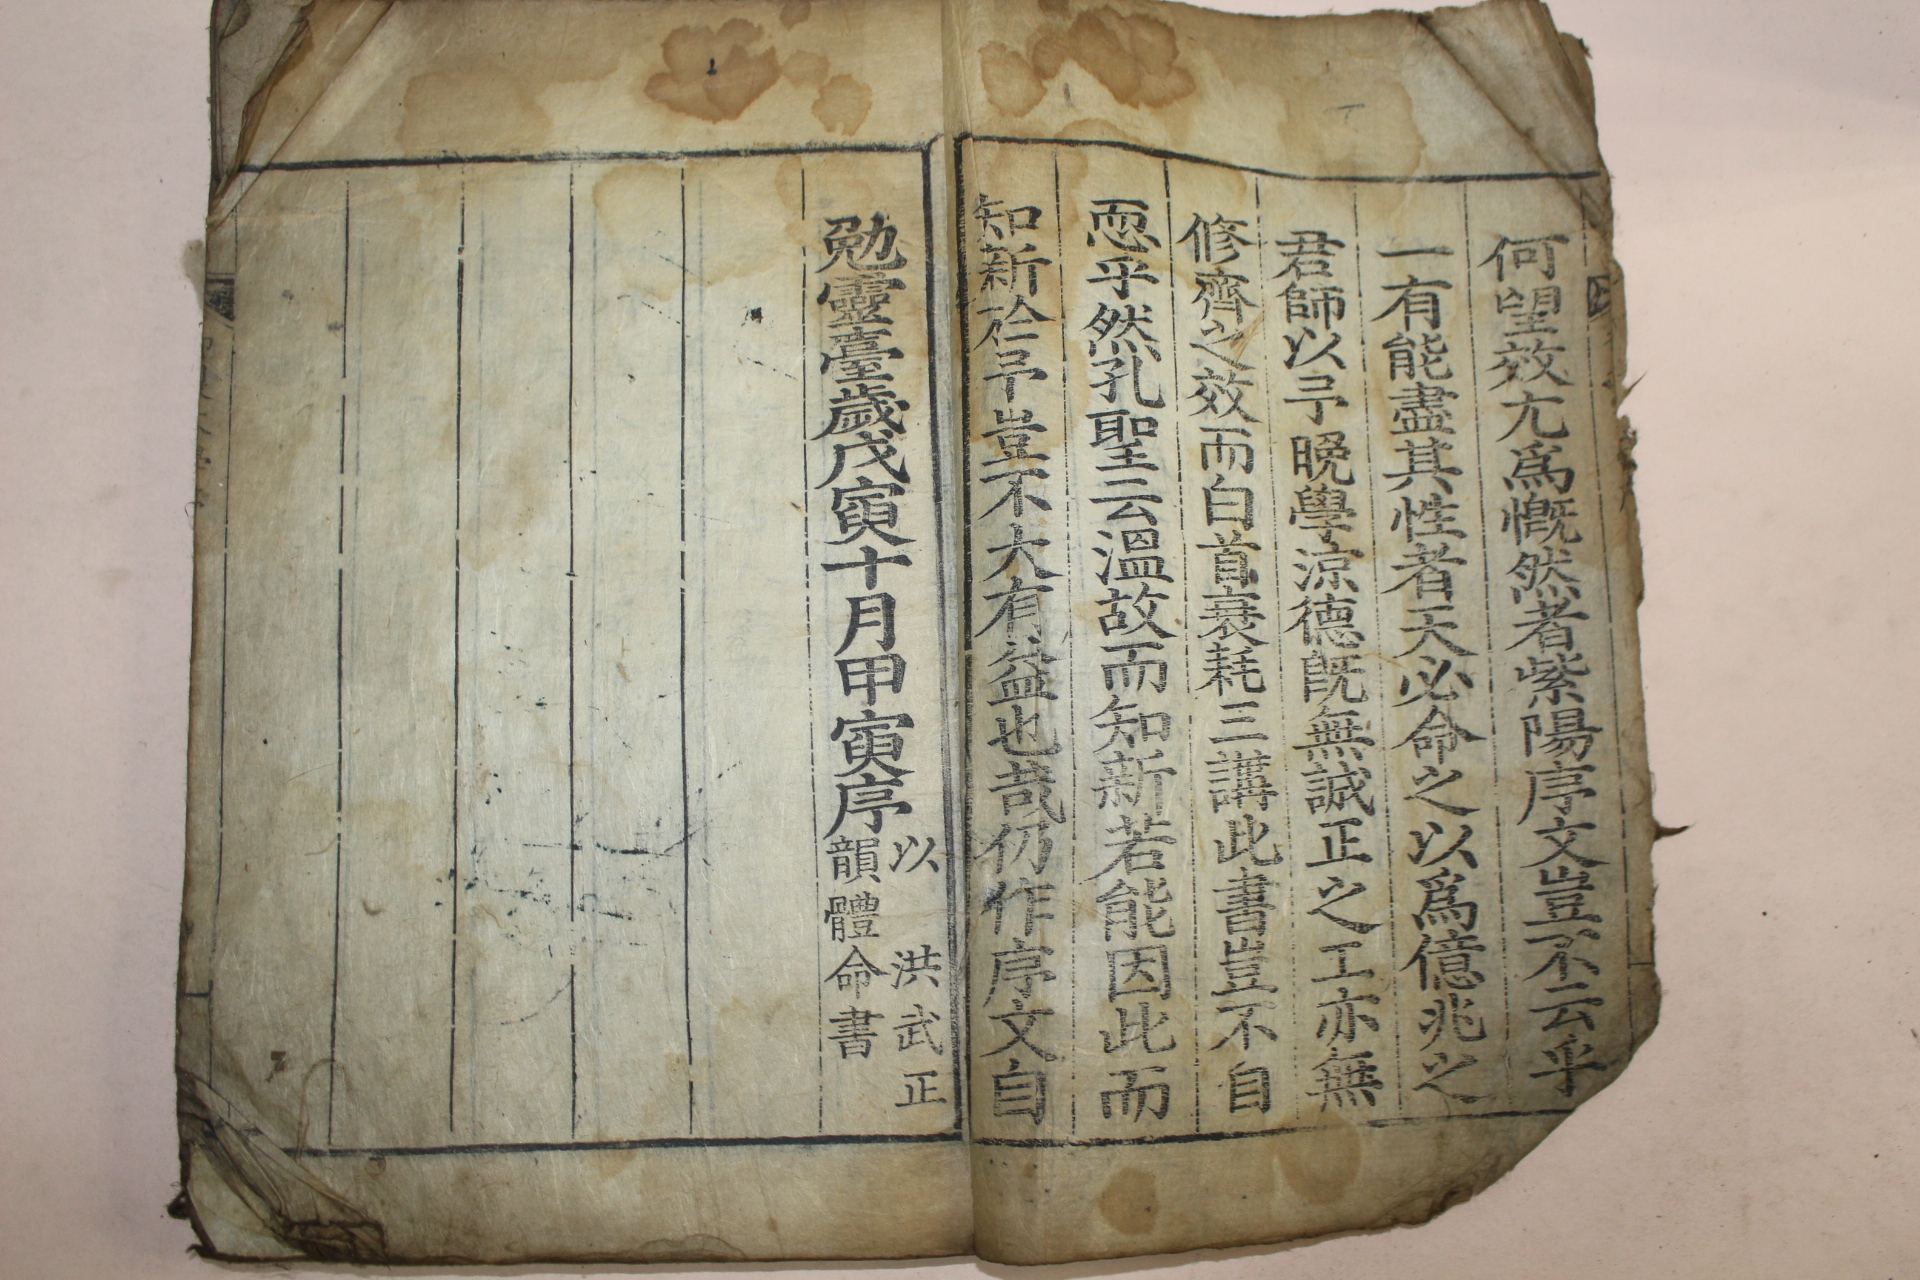 何望效尤爲慨然者紫陽序文豈不云乎
一有能盡其性者天必命之以爲億兆之
君師以予晚學涼德旣無誠正之工亦無
修齊之效而白首衰耗三講此書豈不自
恧乎然孔聖云溫故而知新若能因此而
知新於予豈不大有益也哉仍作序文自
勉靈臺歲戊寅十月甲寅序
以 洪武正
韻體命書